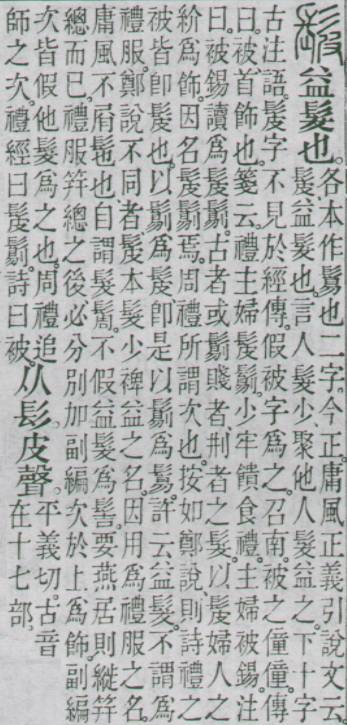 髲 益髮也。各本作鬄也二字。今正。庸風正義引說文云
髲、益髮也。言人髮少、聚他人髮益之。下十字
古注語。髲字不見於經傳。假被字爲之。召南。被之僮僮。傳
曰。被、首飾也。箋云。禮主婦髲鬄。少牢饋食禮。主婦被錫。注
曰。被錫讀爲髲鬄。古者或鬄賤者、刑者之髮。以髲婦人之
紒爲飾。因名髲鬄焉。周禮所謂次也。按如鄭說。則詩禮之
被皆卽髲也。以鬄爲髲。卽是以鬄爲鬄。許云益髮。不謂爲
禮服。鄭說不同者。髲本髮少裨益之名。因用爲禮服之名。
庸風。不屑髢也。自謂髮。不假益髮爲髻。要燕居則縰笄
總而已。禮服笄總之後。必分別加副編次於上爲飾。副編
次皆假他髮爲之也。周禮追
師之次。禮經曰髲鬄。詩曰被。
从髟皮聲。平義切。古音
在十七部。